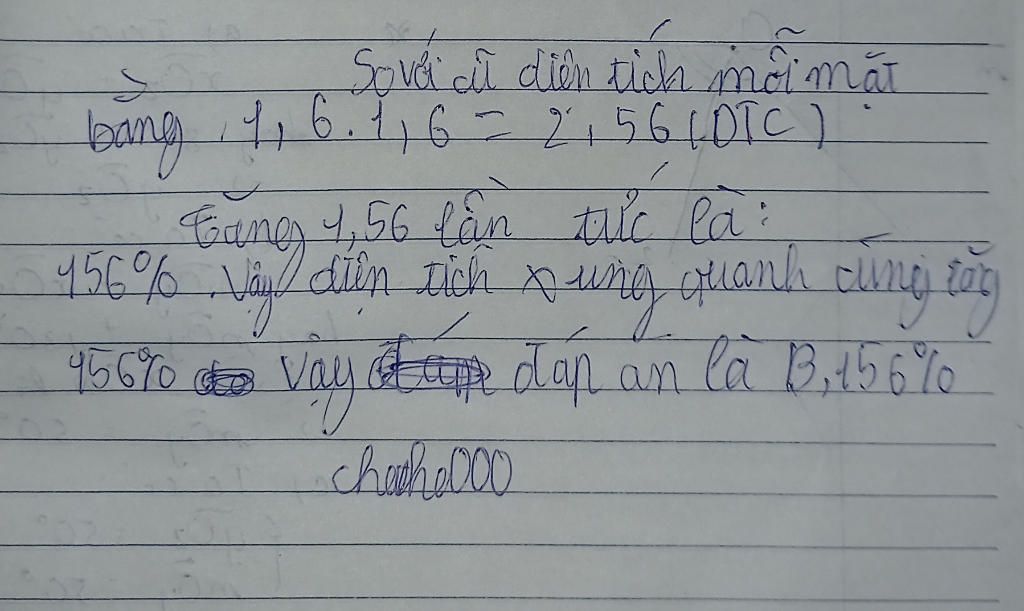 So với cũ diện tích mỗi mặt
bằng 1,6.1,6 = 2,56 (DTC)
tăng 1,56 lần tức là:
156%. Vậy diện tích xung quanh cũng tăg
156% vậy đáp án là B, 156%